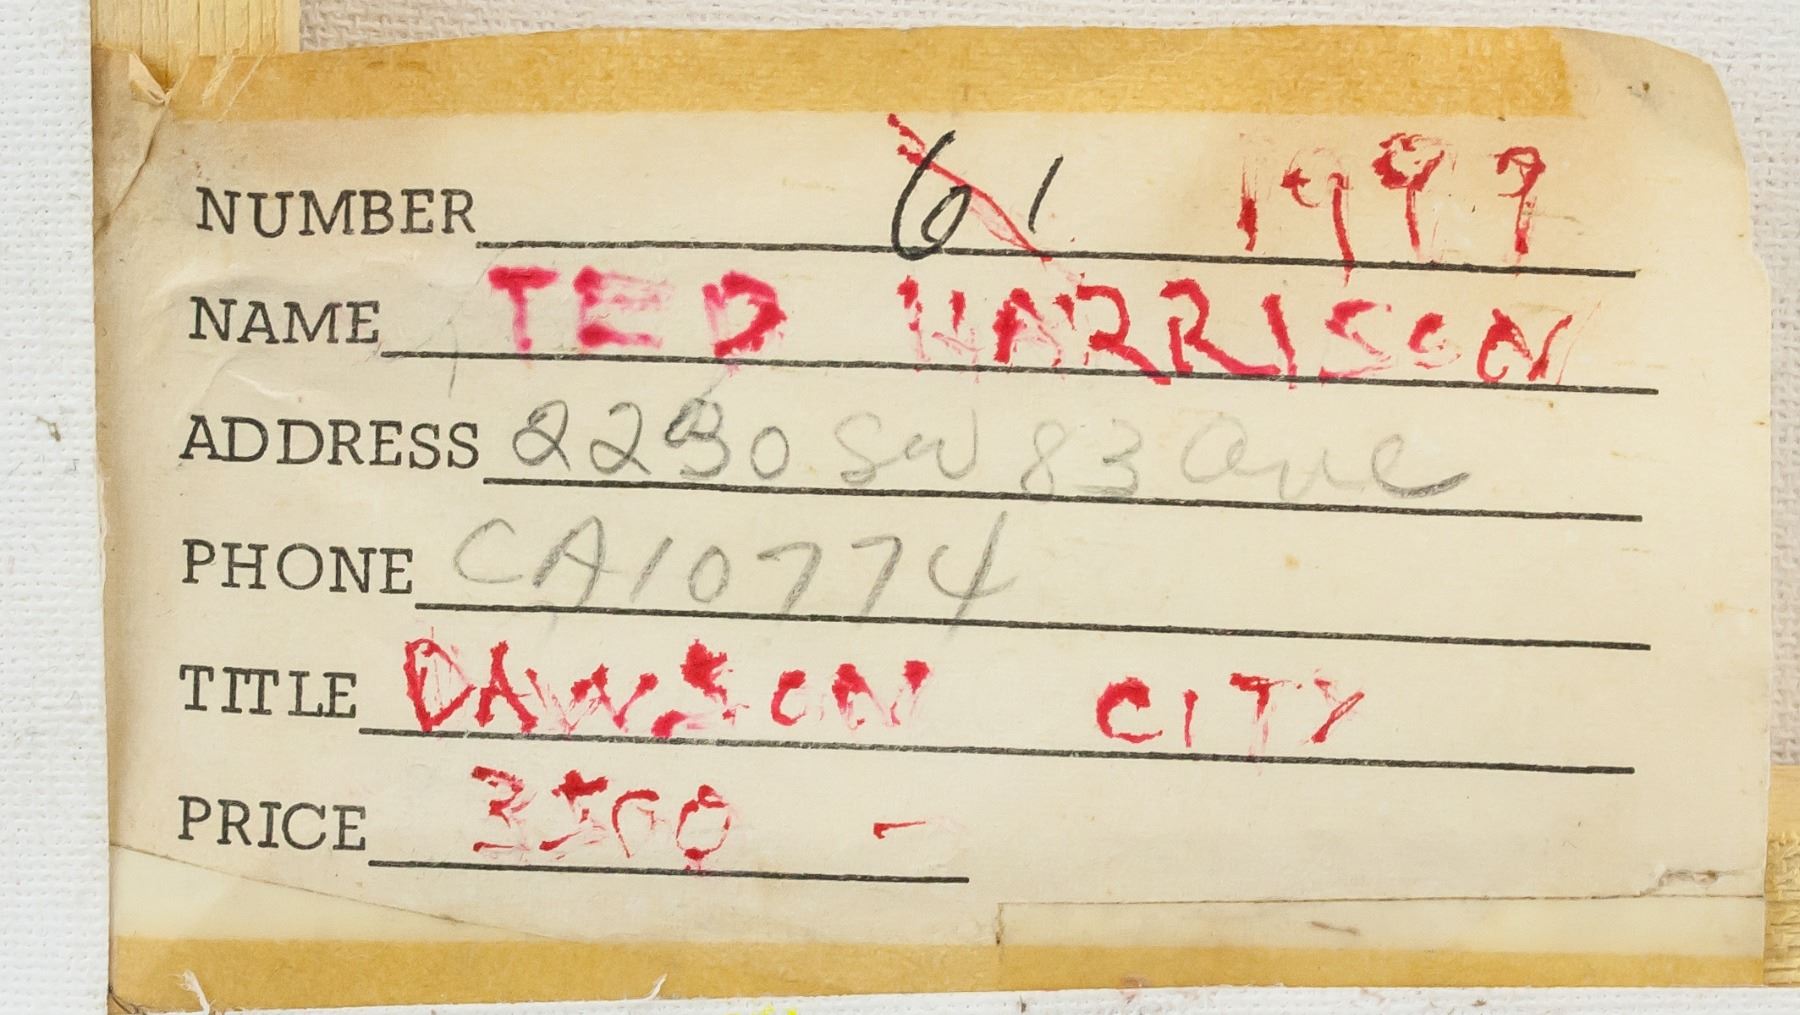 NUMBER 61 1999
NAME TED HARRISON
ADDRESS 2230 SW 83 Ave
PHONE CA10774
TITLE DAWSON CITY
PRICE 3500 -